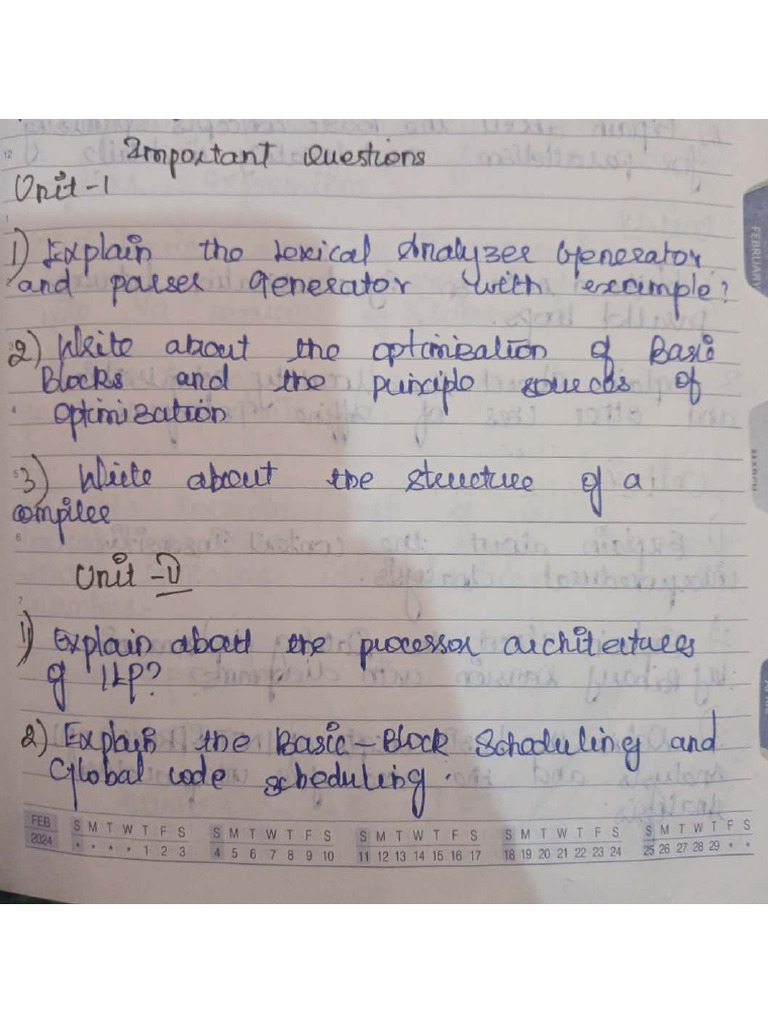 Important Questions
Unit-1
1) Explain the Lexical Analyzer Generator
and parser Generator with example?
2) Write about the optimization of Basic
Blocks and the principle sources of
optimization
3) Write about the structure of a
compiler
Unit-II
1) Explain about the processor architectures
of ILP?
2) Explain the Basic-Block Scheduling and
Global code scheduling.
FEB 2024
S M T W T F S S M T W T F S S M T W T F S S M T W T F S S M T W T F S
• • • • 1 2 3 4 5 6 7 8 9 10 11 12 13 14 15 16 17 18 19 20 21 22 23 24 25 26 27 28 29 • •
FEBRUARY